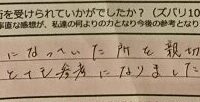 術を受けられていかがでしたか？（ズバリ10
直な感想が、私達の何よりの力となり今後の参考となり
になっていた所を親切
とても参考になりました